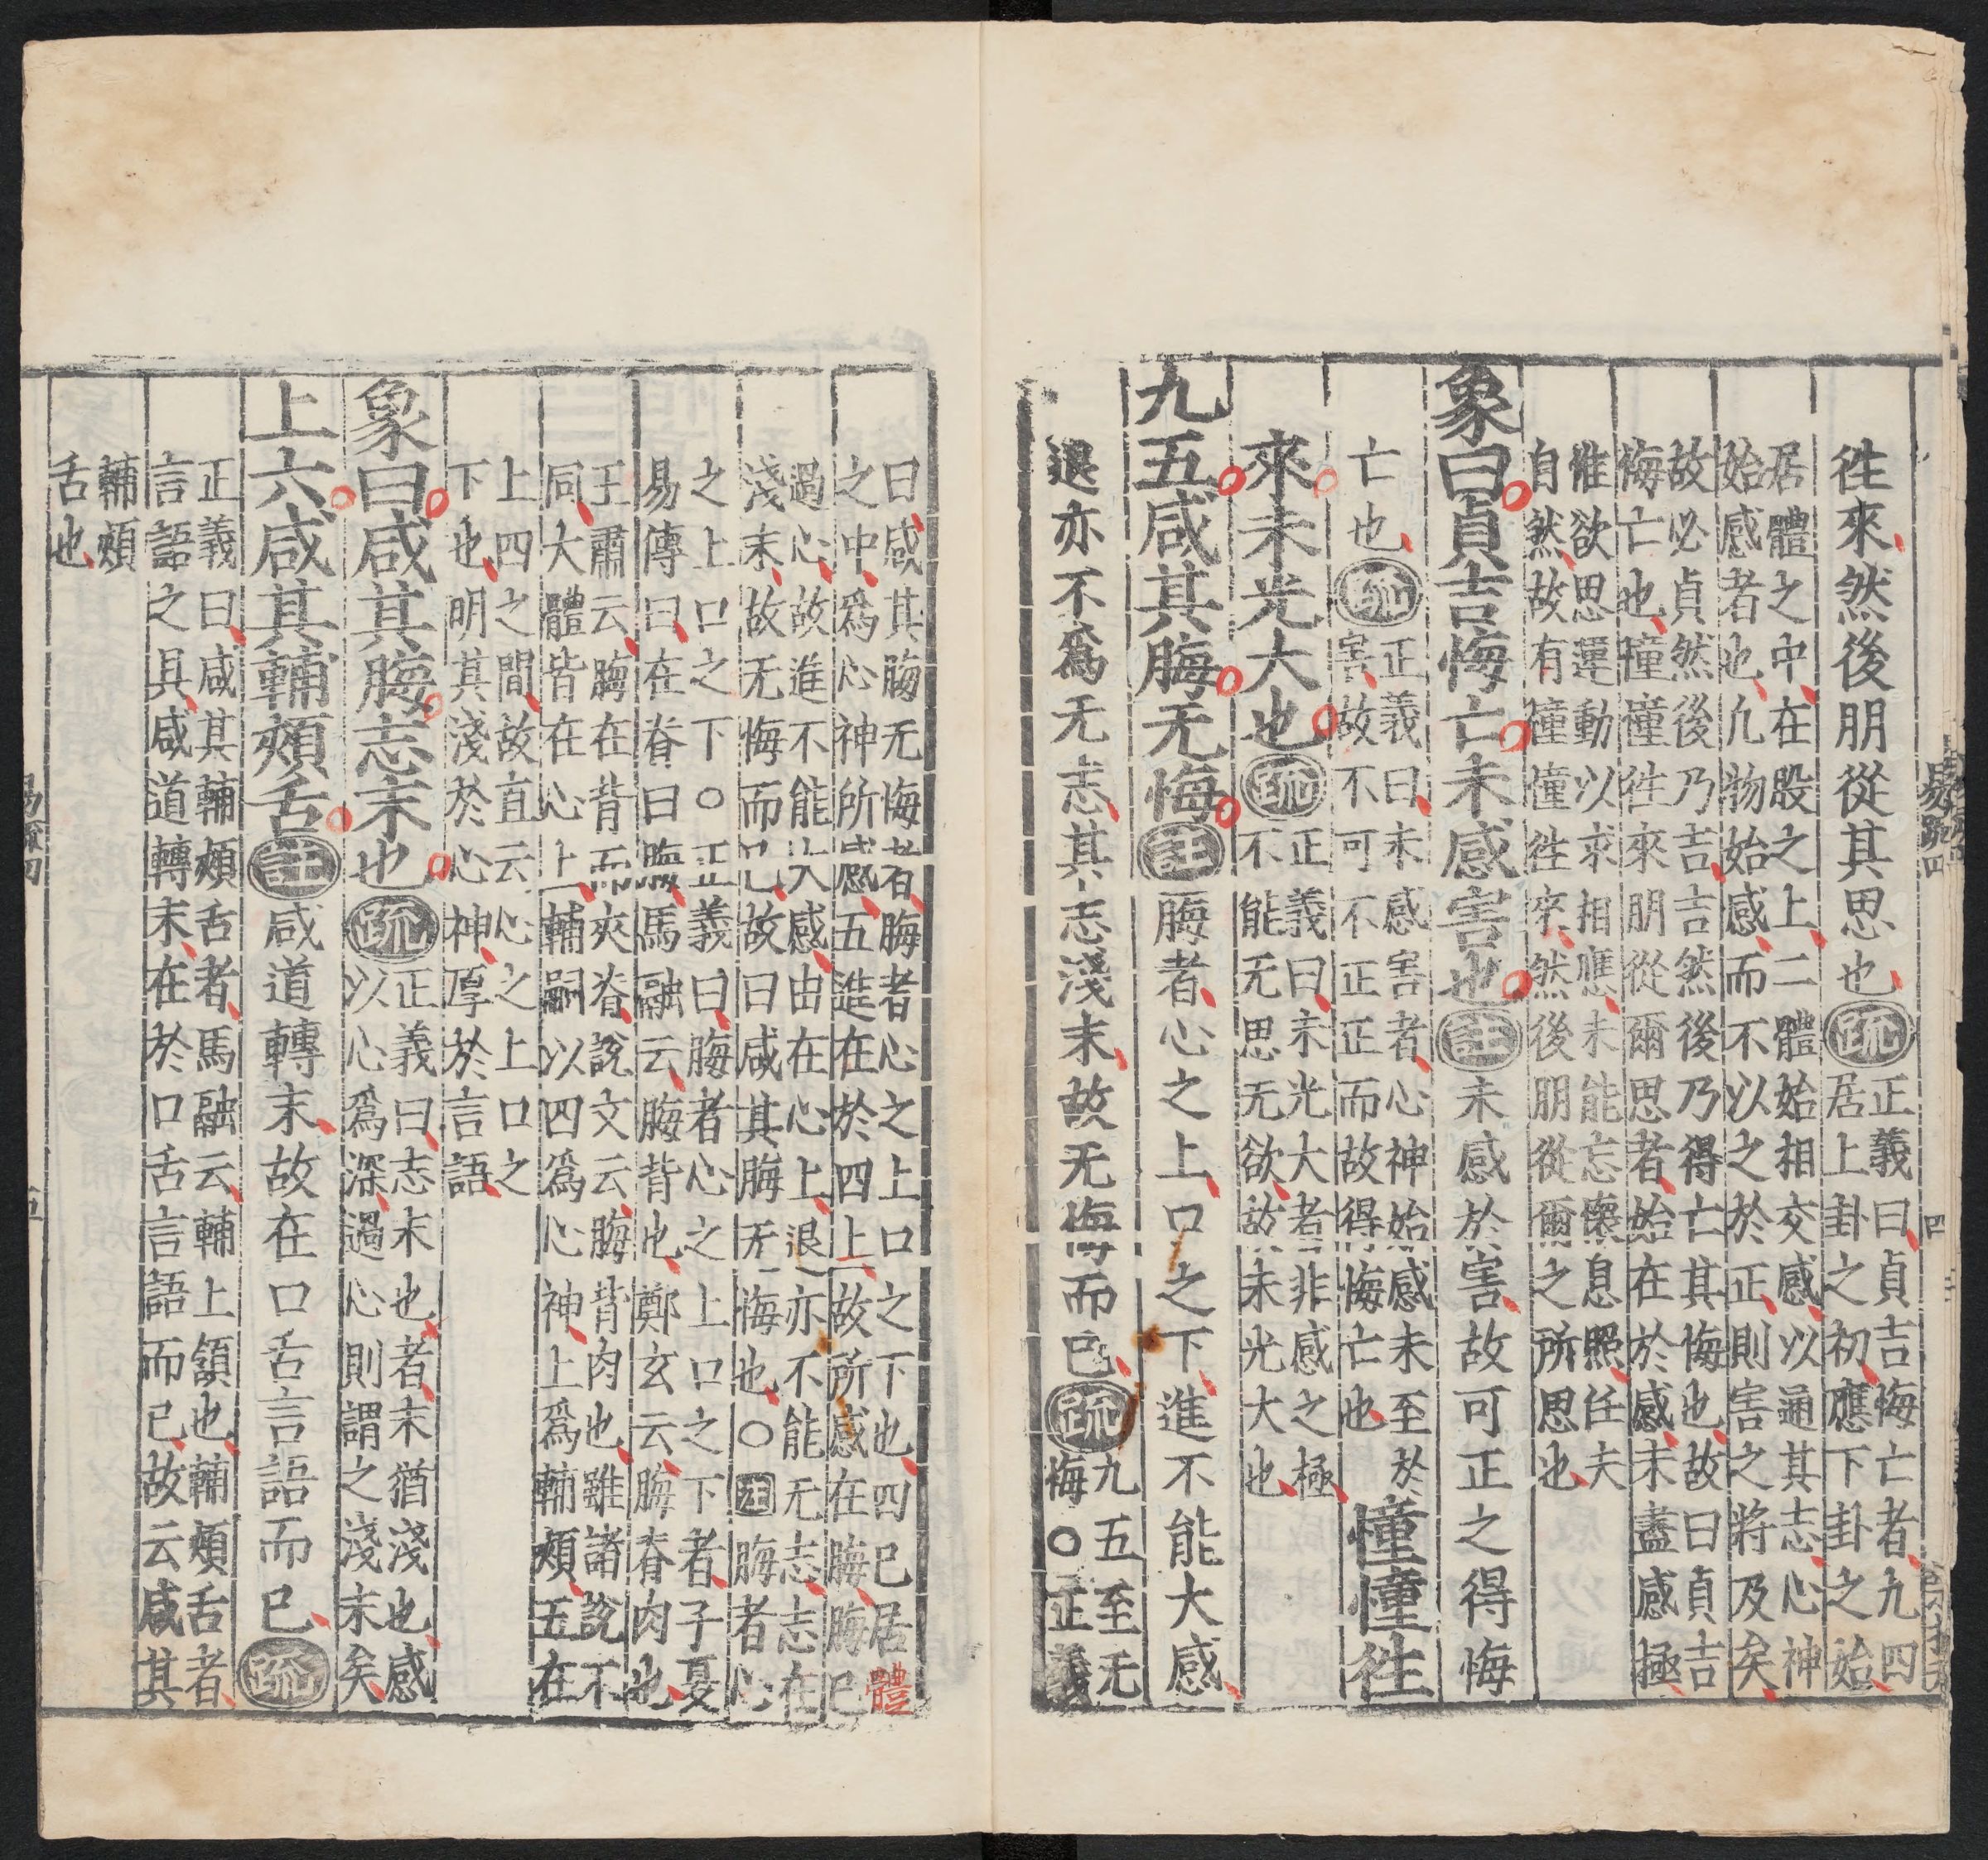 易疏四
四
徃來然後朋從其思也疏
正義曰貞吉悔亡者九四
居上卦之初應下卦之始
居體之中在股之上二體始相交感以通其志心神
始感者也凢物始感而不以之於正則害之將及矣
故必貞然後乃吉吉然後乃得亡其悔也故曰貞吉
悔亡也憧憧徃來朋從爾思者始在於感未盡感極
惟欲思運動以求相應未能忘懷息照任夫
自然故有憧憧徃來然後朋從爾之所思也
象曰貞吉悔亡未感害也註未感於害故可正之得悔
亡也疏
正義曰未感害者心神始感未至於
害故不可不正正而故得悔亡也
憧憧徃
來未光大也疏
正義曰未光大者非感之極
不能无思无欲故未光大也
九五咸其脢无悔註脢者心之上口之下進不能大感
退亦不爲无志其志淺末故无悔而已疏
九五至无
悔○正義
曰咸其脢无悔者脢者心之上口之下也四已居體
之中爲心神所感五進在於四上故所感在脢脢已
過心故進不能大感由在心上退亦不能无志志在
淺末故无悔而已故曰咸其脢无悔也○註脢者心
之上口之下○正義曰脢者心之上口之下者子夏
易傳曰在脊曰脢馬融云脢背也鄭玄云脢脊肉也
王肅云脢在背而夾脊說文云脢背肉也雖諸說不
同大體皆在心上輔嗣以四爲心神上爲輔頰五在
上四之間故直云心之上口之
下也明其淺於心神厚於言語
象曰咸其脢志末也疏
正義曰志末也者末猶淺也感
以心爲深過心則謂之淺末矣
上六咸其輔頰舌註咸道轉末故在口舌言語而已疏
正義曰咸其輔頰舌者馬融云輔上頷也輔頰舌者
言語之具咸道轉末在於口舌言語而已故云咸其
輔頰
舌也
易疏四
五